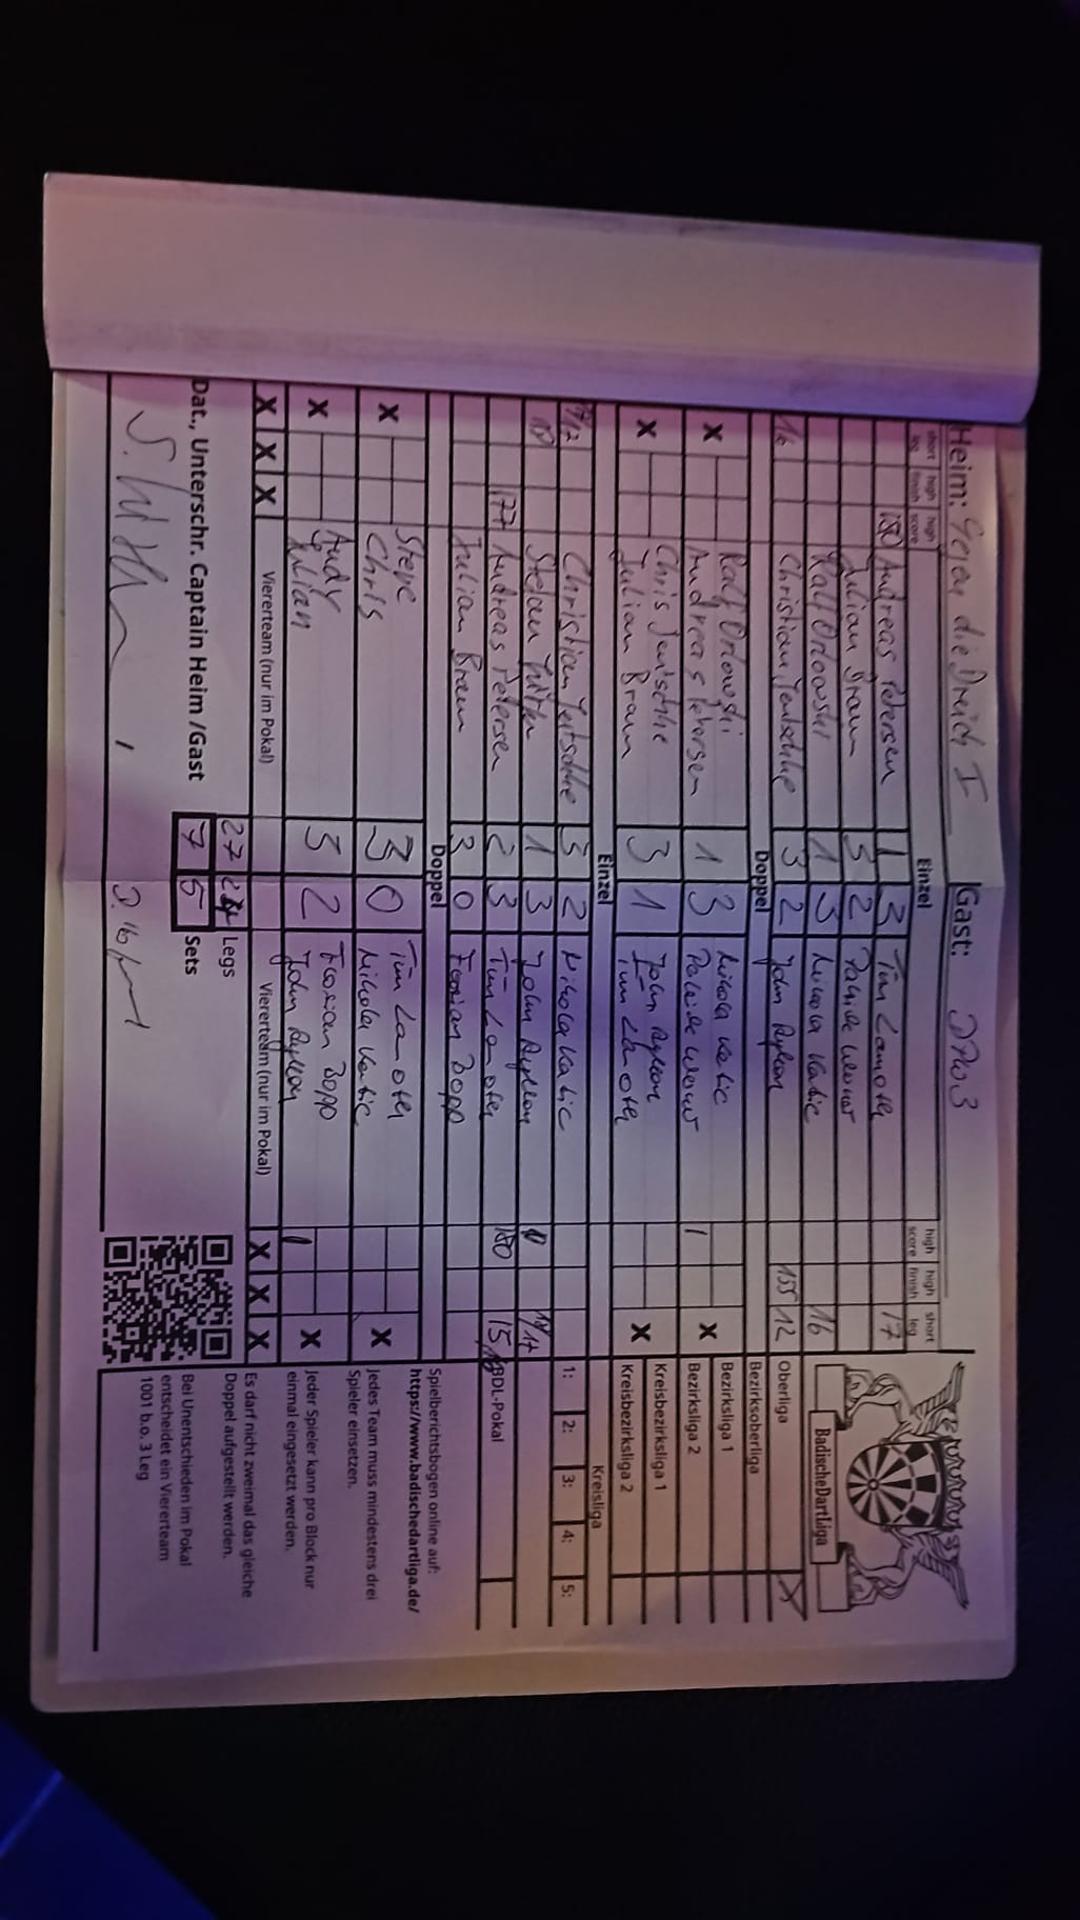 Heim: die Dreich I Gast: DPKO3
short leg high finish high score Einzel high score high finish short leg
180 Andreas Petersen 1 3 Tim 17
Julian Braun 3 2
Ralf Orlowski 1 3 Nikola Katic 16
16 Christian Jentschke 3 2 John 155 12
Doppel
X Ralf Orlowski Nikola Katic X
Andreas Petersen 1 3
X Chris Jentschke John X
Julian Braun 3 1 Tim
Einzel
Christian Jentschke 3 2 Nikola Katic
18 Stefan 1 3 John
177 Andreas Petersen 2 3 Tim 180 15
Julian Braun 3 0 Florian Bopp
Doppel
X Steve Tim X
Chris 3 0 Nikola Katic
X Andy Florian Bopp X
Julian 3 2 John
X X X Viererteam (nur im Pokal) Viererteam (nur im Pokal) X X X
27 24 Legs
Dat., Unterschr. Captain Heim /Gast 7 5 Sets
BadischeDartLiga
Oberliga X
Bezirksoberliga
Bezirksliga 1
Bezirksliga 2
Kreisbezirksliga 1
Kreisbezirksliga 2
Kreisliga
1: 2: 3: 4: 5:
BDL-Pokal
Spielberichtsbogen online auf:
https://www.badischedartliga.de/
Jedes Team muss mindestens drei
Spieler einsetzen.
Jeder Spieler kann pro Block nur
einmal eingesetzt werden.
Es darf nicht zweimal das gleiche
Doppel aufgestellt werden.
Bei Unentschieden im Pokal
entscheidet ein Viererteam
1001 b.o. 3 Leg